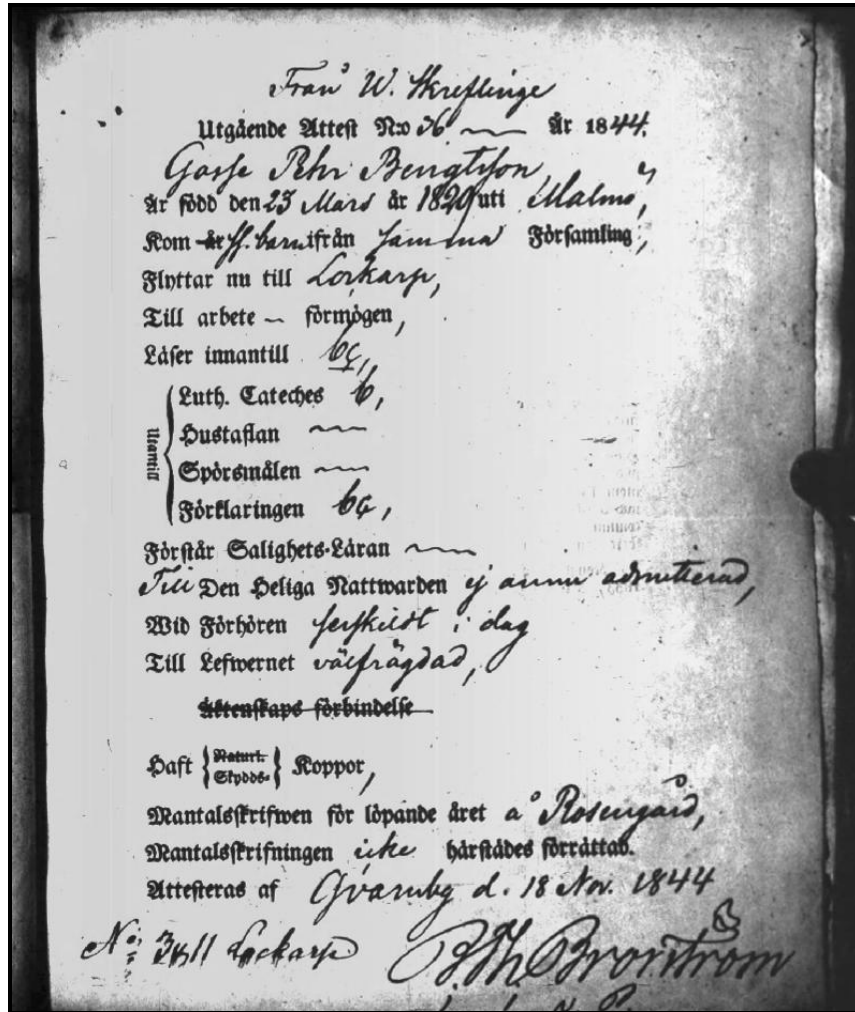 Från W. Skreflinge
Utgående Attest N:o 36 År 1844.
Gosse Pehr Bengtsson,
Är född den 23 Mars år 1829 uti Malmö,
Kom år ss. barn ifrån samma Församling,
Flyttar nu till Lockarp,
Till arbete – förmögen,
Läser innantill
Utantill
Luth. Cateches b,
Hustaflan
Spörsmålen
Förklaringen
Förstår Salighets-Läran
Till Den Heliga Nattwarden ej ännu admitterad,
Wid Förhören serskildt i dag
Till Lefwernet välfrägdad,
Äktenskaps förbindelse
Haft { Naturl. Skydds- } Koppor,
Mantalsskrifwen för löpande året å Rosengård,
Mantalsskrifningen icke härstädes förrättad.
Attesteras af Qvarnby d. 18 Nov. 1844
B. Th. Brorström
N:o Lockarp